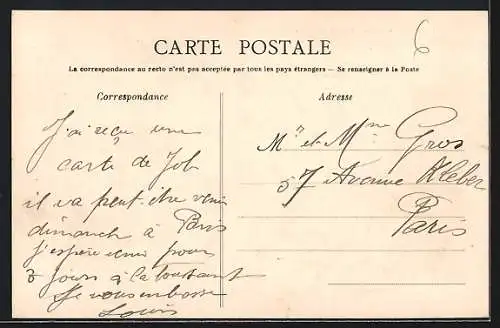 6
CARTE POSTALE
La correspondance au recto n'est pas acceptée par tous les pays étrangers — Se renseigner à la Poste
Correspondance
Adresse
J'ai reçu une
carte de Job
il va peut-être venir
dimanche à Paris
j'espère venir pour
3 jours à la toussaint
Je vous embrasse
Louis
Mr et Mme Gros
57 Avenue Kleber
Paris